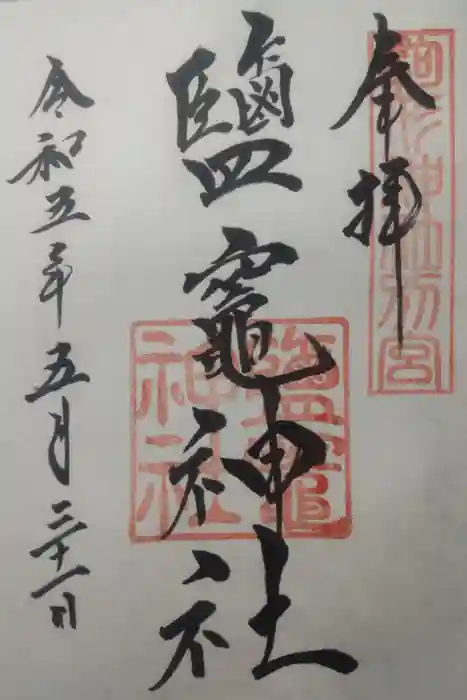 奉拝
鹽竈神社
鹽竈
神社
令和五年五月二十一日